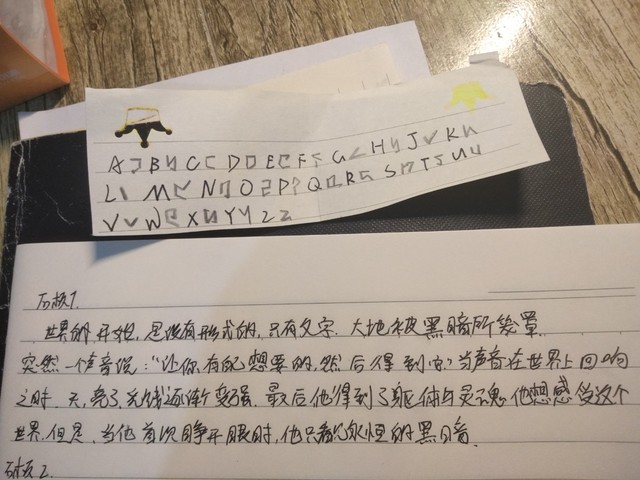 A B C D E F G H J K
L M N O P Q R S T U
V W X Y Z
石板1.
世界的开始,是没有形式的,只有文字.大地被黑暗所笼罩
突然一个声音说:"让你有所想要的,然后得到它"当声音在世界上回响
之时.天,亮了,光线逐渐变强.最后他得到了躯体与灵魂他想感受这个
世界,但是,当他首次睁开眼时,他只看见永恒的黑暗.
石板2.